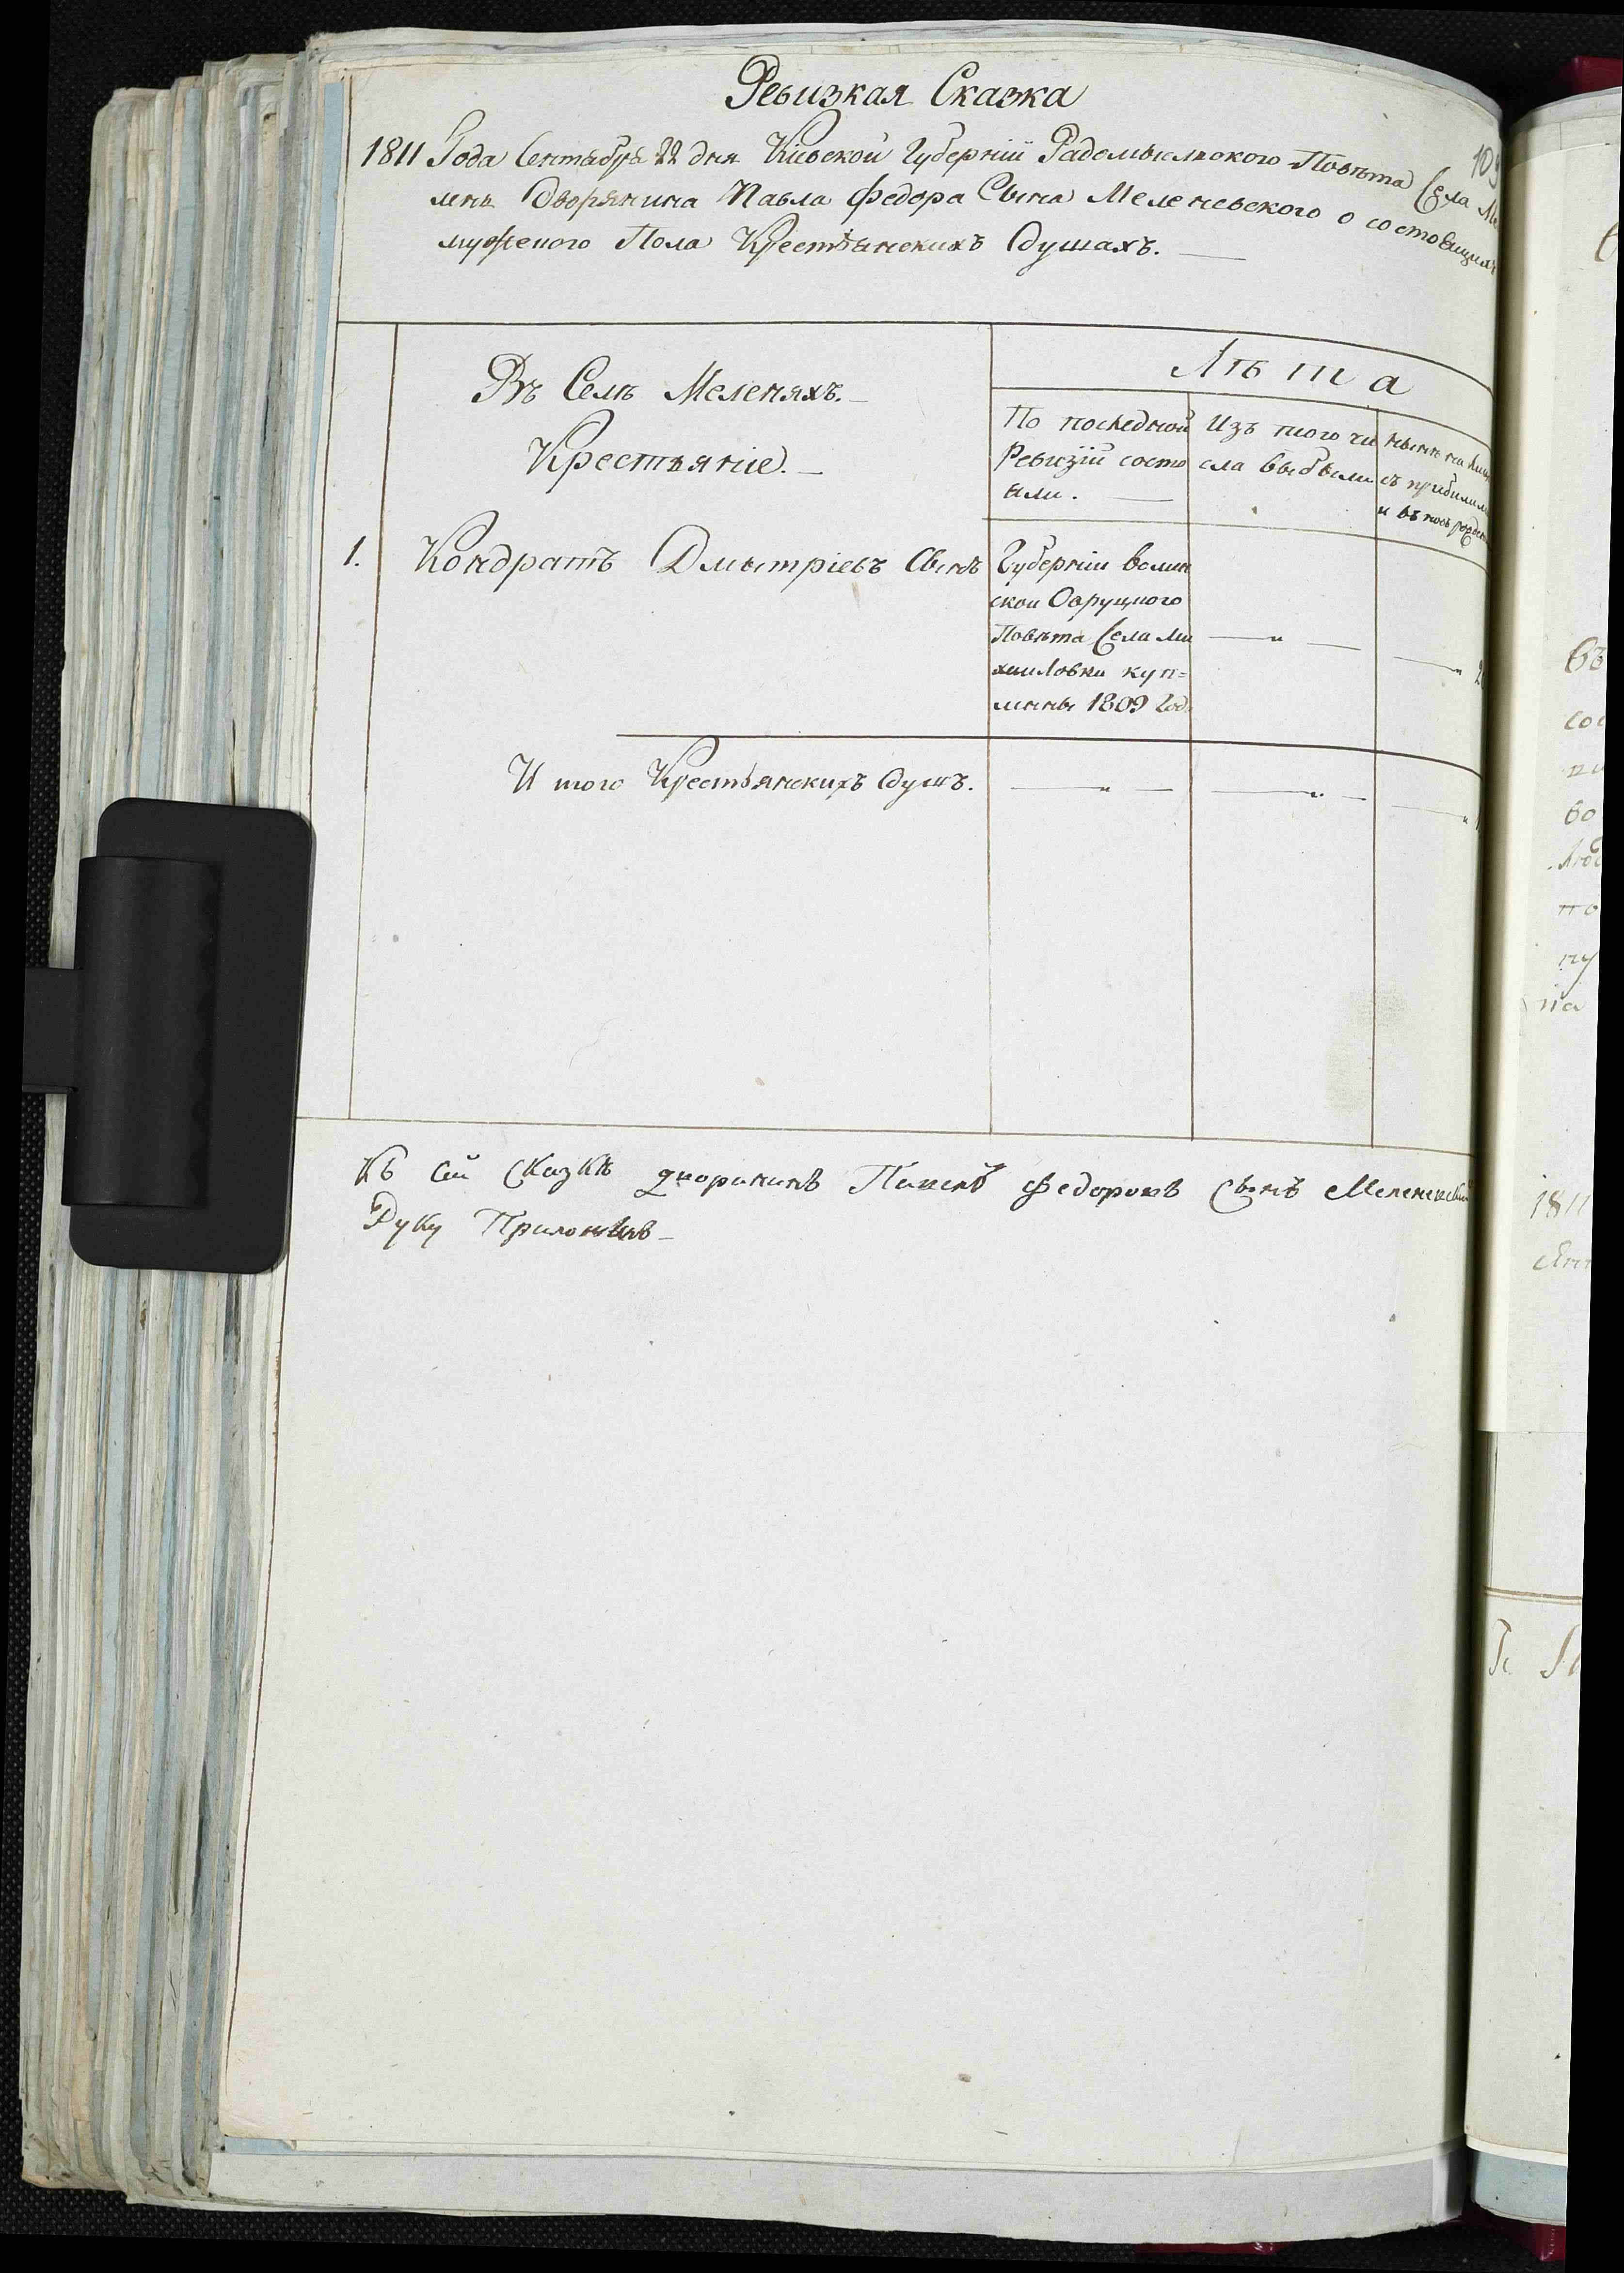 Ревизкая Сказка
1811 Года Сентября 22 дня Кіевской Губерніи Радомысльского Повѣта Села Ме
лень Дворянина Павла Федора Сына Меленевского о состоящихъ
мужеского Пола Крестьянскихъ Душахъ.
Въ Селѣ Меленяхъ.
Крестьяніе.
Лѣта
По последной
Ревизіи состо
яли.
Изъ того чи
сла выбыли
нынѣ на лицо
съ прибилыми
и въ новь рожден
1. Кондратъ Дмытріевъ Сынъ
Губерніи волин
скои Овруцкого
Повѣта Села Ми
хайловки куп=
лины 1809 Год.
2
И того Крестьянскихъ Душъ.
Къ сей сказкѣ дворянинъ Павелъ Федоровъ Сынъ Меленевскій
Руку Приложилъ
въ
сос
во
по
1811